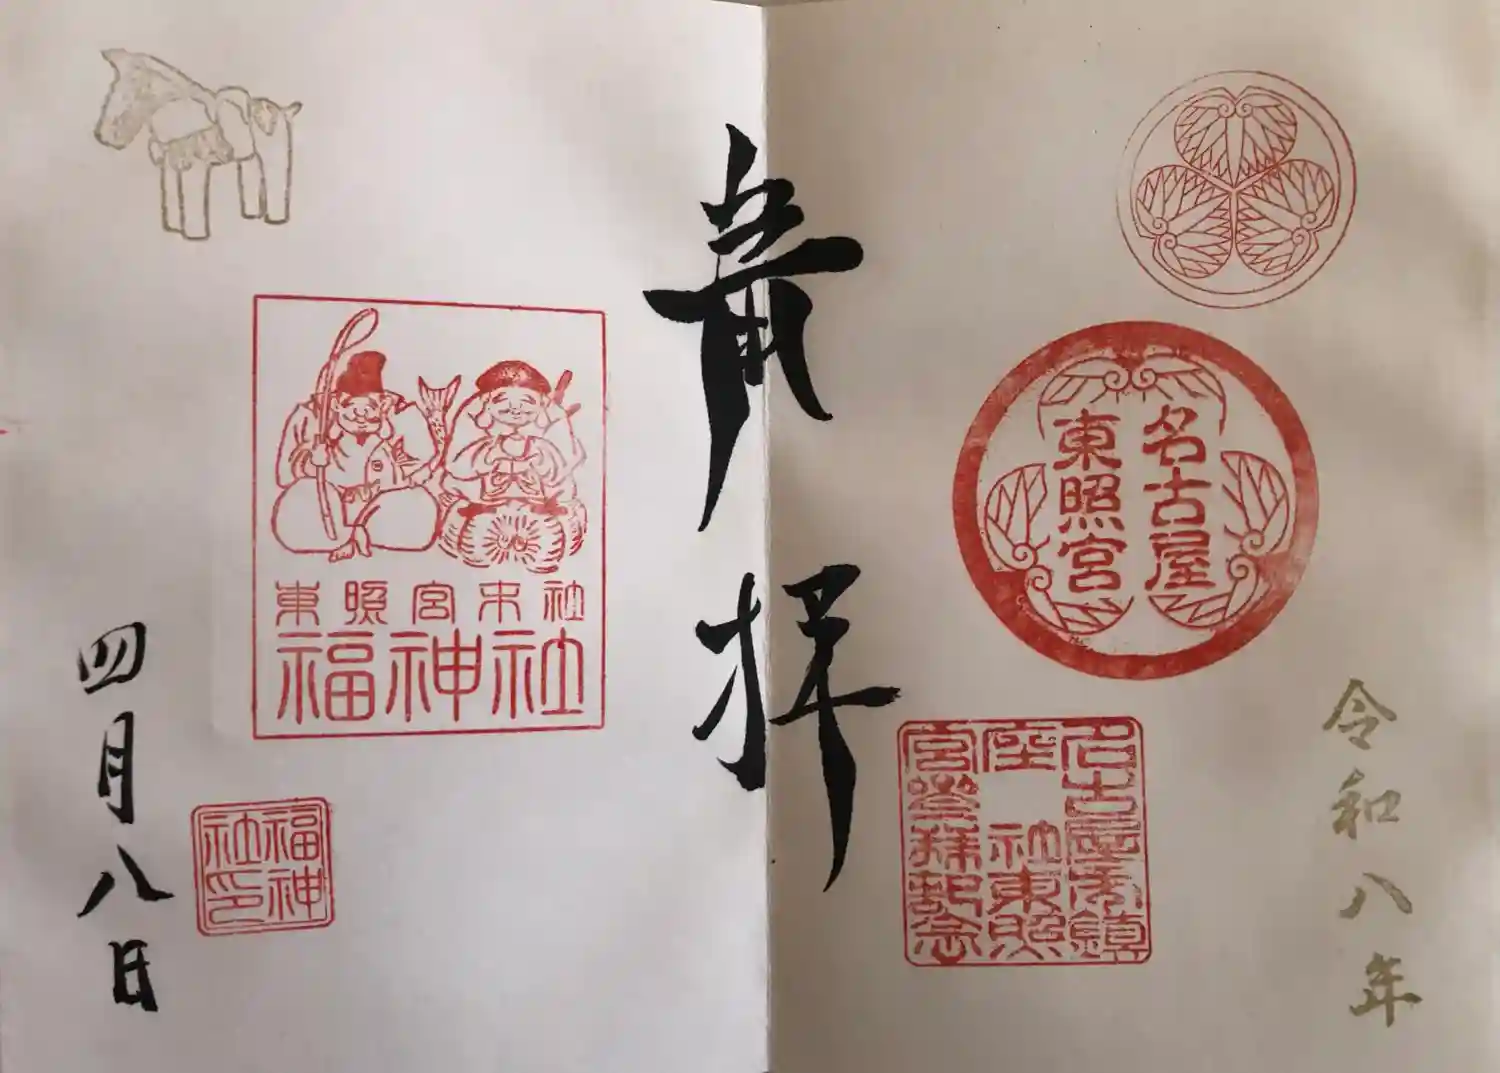 名古屋
東照宮
名古屋市鎮
座 社東照
宮参拝記念
令和八年
奉拝
東照宮末社
福神社
福神
社印
四月八日